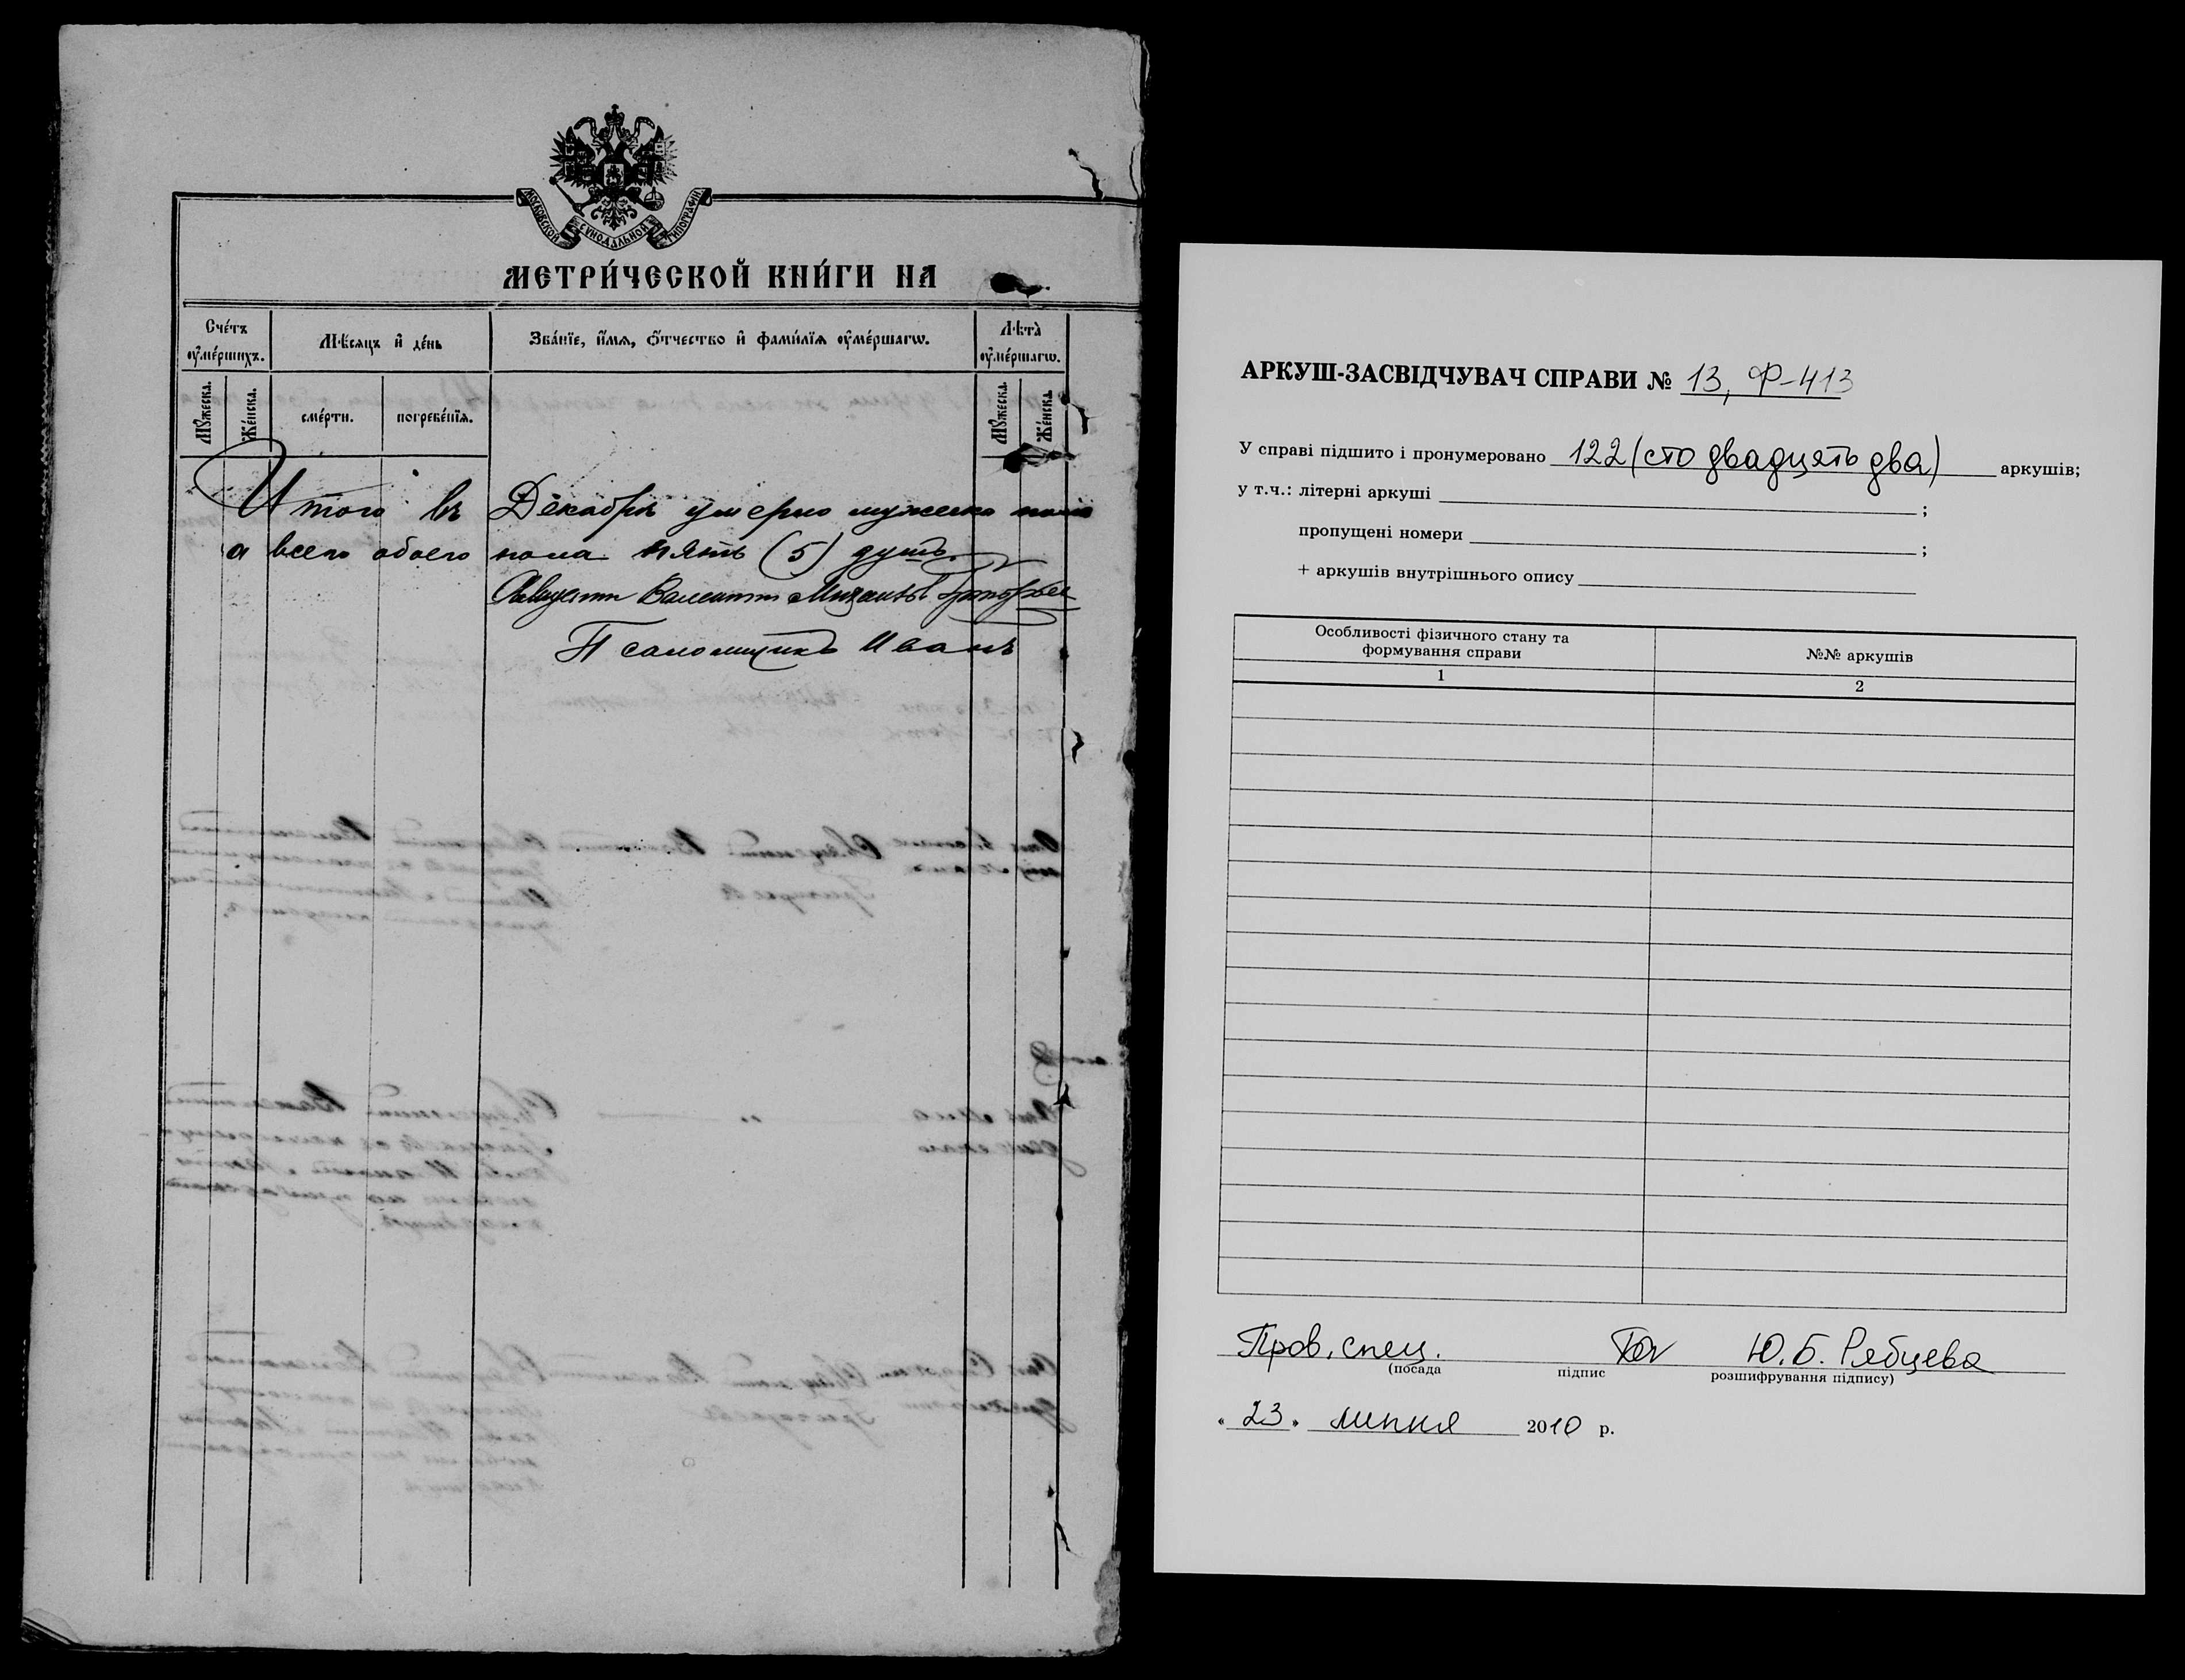 МОСКОВСКОЙ СѴНОДАЛЬНОЙ ТИПОГРАФІИ
МЕТРИ́ЧЕСКОЙ КНИ́ГИ НА
Сче́тъ ᲂу҆ме́ршихъ.
Мѣ́сяцъ и҆ де́нь
Зва́нїе, и҆́мѧ, ѻ҆́тчество и҆ фами́лїѧ ᲂу҆ме́ршагѡ.
Лѣ̀та ᲂу҆ме́ршагѡ.
Мꙋ́жеска.
Же́нска.
сме́рти.
погребе́нїѧ.
Мꙋ́жеска.
Же́нска.
Итого въ Декабрѣ умерло мужеска
а всего обоего пола пять (5) душъ.
Священн Валентин
Псаломщикъ Иванъ
АРКУШ-ЗАСВІДЧУВАЧ СПРАВИ № 13, Ф-413
У справі підшито і пронумеровано 122 (сто двадцять два) аркушів;
у т.ч.: літерні аркуші ;
пропущені номери ;
+ аркушів внутрішнього опису
Особливості фізичного стану та
формування справи
№№ аркушів
1
2
Пров. спец. Ю.Б. Рябцева
(посада підпис розшифрування підпису)
« 23 » липня 2010 р.